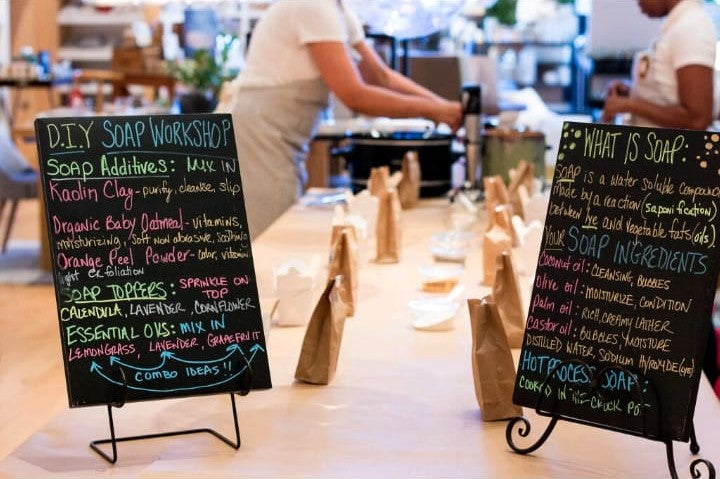 D.I.Y SOAP WORKSHOP
SOAP ADDITIVES: MIX IN
KAOLIN CLAY - purify, cleanse, slip
ORGANIC BABY OATMEAL - vitamins,
moisturizing, soft non abrasive, soothing
ORANGE PEEL POWDER - color, vitamin
light exfoliation
SOAP TOPPERS: SPRINKLE ON
TOP
CALENDULA, LAVENDER, CORNFLOWER
ESSENTIAL OILS: MIX IN
LEMONGRASS, LAVENDER, GRAPEFRUIT
COMBO IDEAS!!
WHAT IS SOAP:
SOAP IS A WATER SOLUBLE COMPOUND
MADE BY A REACTION (SAPONIFICATION)
BETWEEN lye AND VEGETABLE FATS (OILS)
YOUR SOAP INGREDIENTS
COCONUT OIL: CLEANSING, BUBBLES
OLIVE OIL: MOISTURIZE, CONDITION
PALM OIL: RICH, CREAMY LATHER
CASTOR OIL: BUBBLES, MOISTURE
DISTILLED WATER, SODIUM (lye)
HOT PROCESS SOAP:
COOKED IN CROCK POT